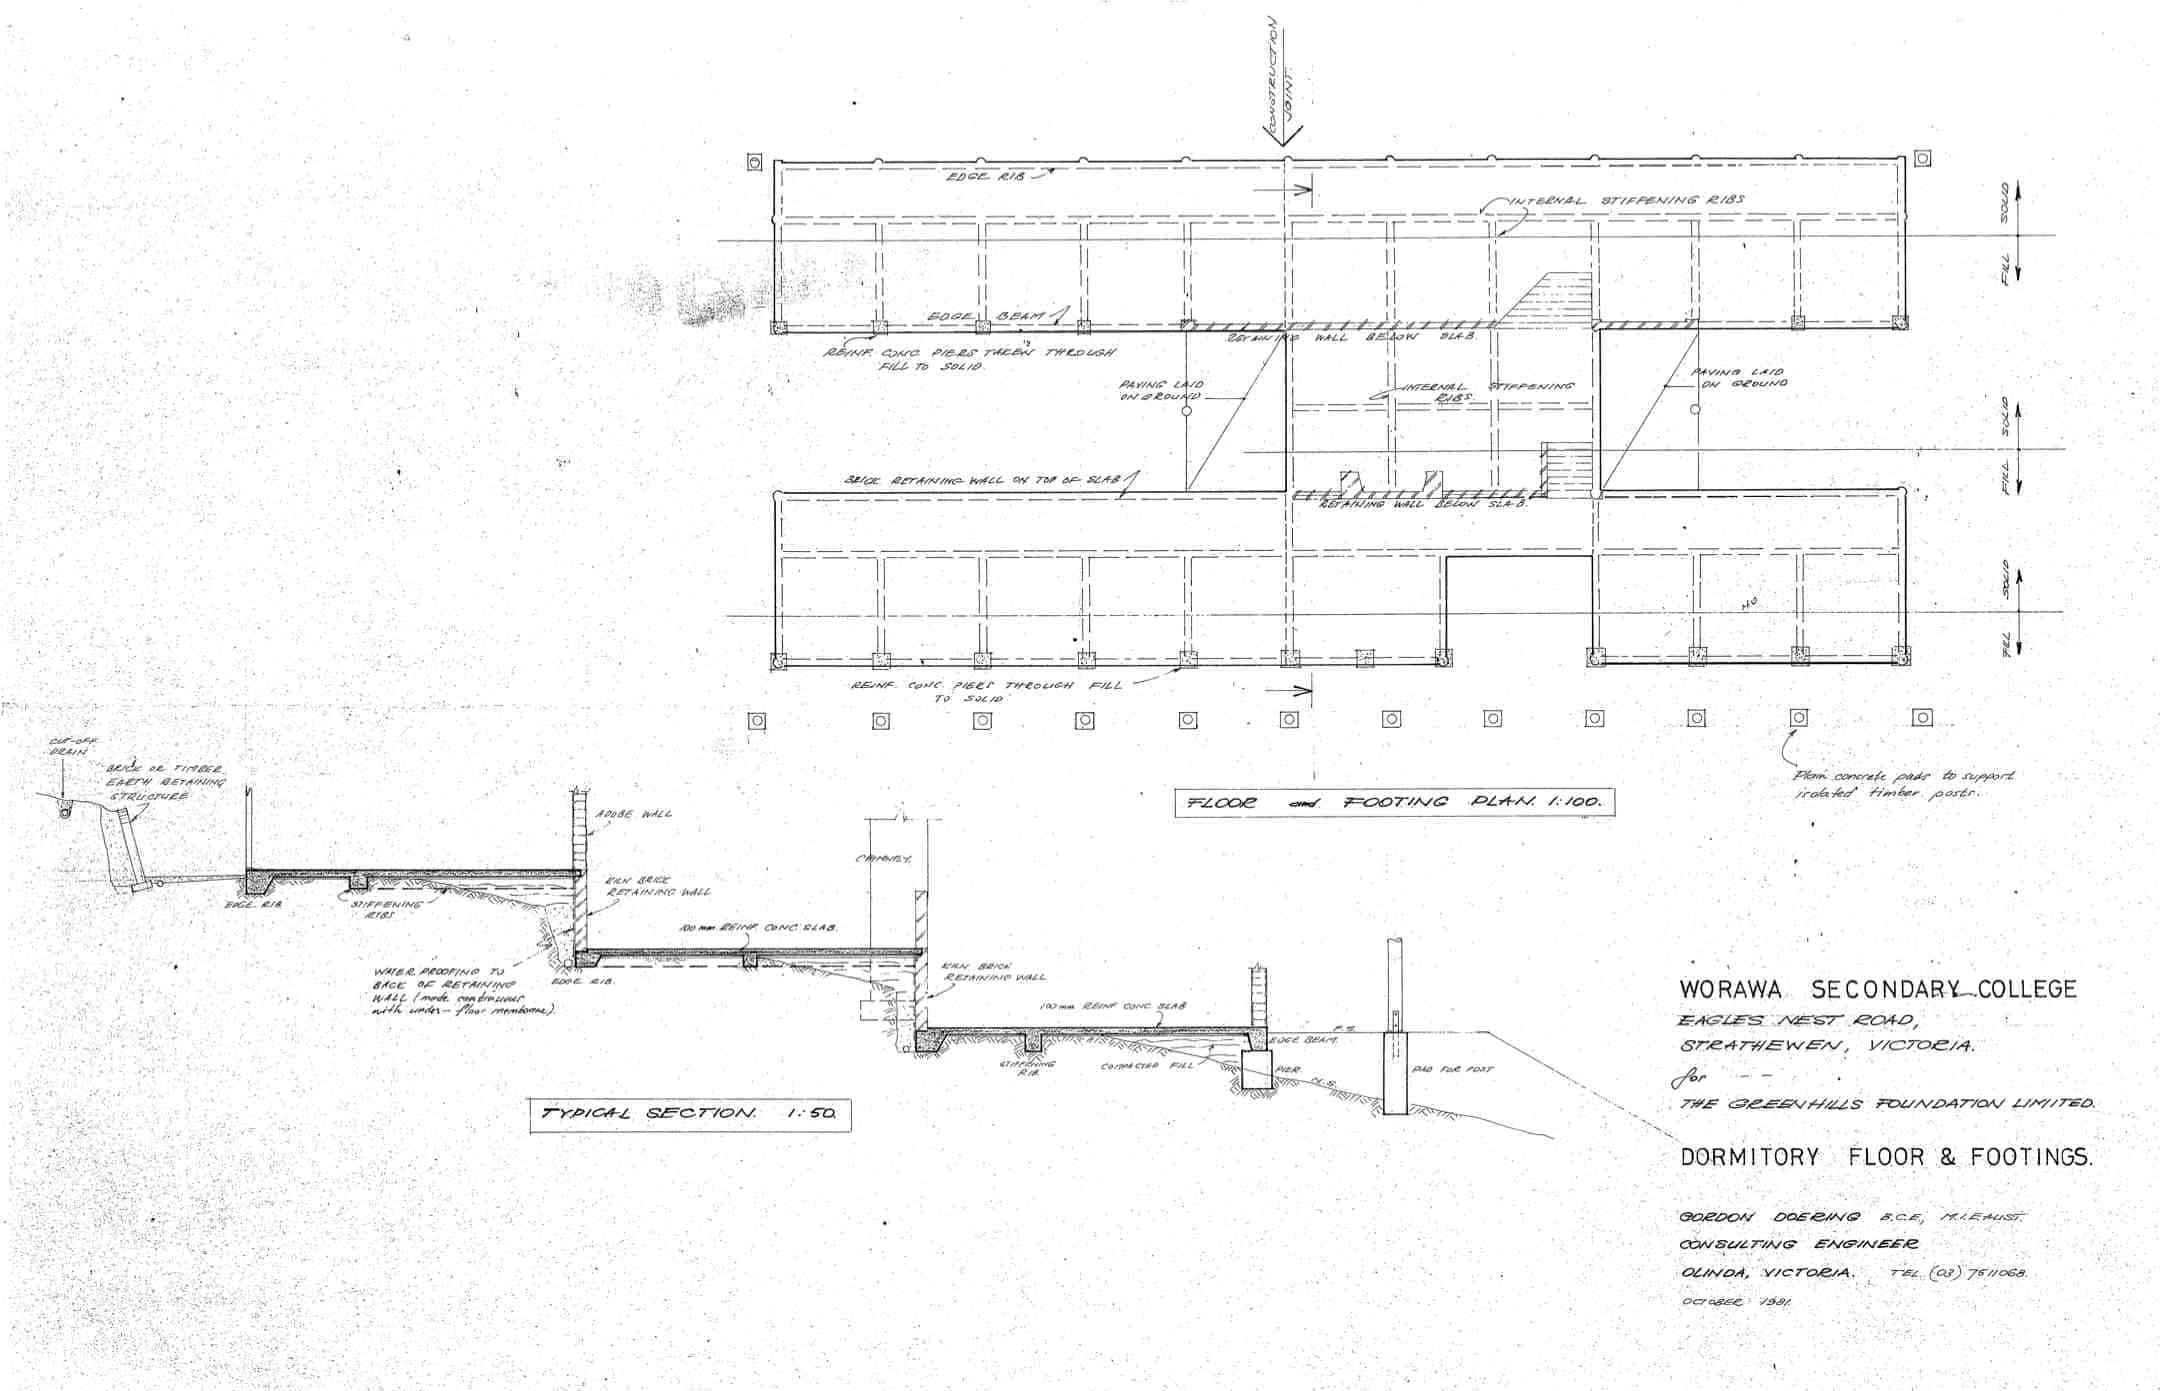 CONSTRUCTION
JOINT.
EDGE RIB
INTERNAL STIFFENING RIBS
SOLID
FILL
EDGE BEAM
REINF. CONC. PIERS TAKEN THROUGH
FILL TO SOLID.
RETAINING WALL BELOW SLAB.
PAVING LAID
ON GROUND
INTERNAL STIFFENING
RIBS.
PAVING LAID
ON GROUND
SOLID
FILL
BRICK RETAINING WALL ON TOP OF SLAB
RETAINING WALL BELOW SLAB.
SOLID
FILL
REINF. CONC. PIERS THROUGH FILL
TO SOLID.
Plain concrete pads to support
isolated timber posts.
FLOOR and FOOTING PLAN. 1:100.
CUT-OFF
DRAIN
BRICK OR TIMBER
EARTH RETAINING
STRUCTURE
ADOBE WALL
CHIMNEY.
KILN BRICK
RETAINING WALL
EDGE RIB
STIFFENING
RIBS
100 mm REINF. CONC. SLAB.
WATER PROOFING TO
BACK OF RETAINING
WALL (made continuous
with under-floor membrane).
EDGE RIB.
KILN BRICK
RETAINING WALL
100 mm REINF CONC SLAB
F.S.
EDGE BEAM.
STIFFENING
RIB.
COMPACTED FILL
PIER.
N.S.
PAD FOR POST
TYPICAL SECTION. 1:50.
WORAWA SECONDARY COLLEGE
EAGLES NEST ROAD,
STRATHEWEN, VICTORIA.
for
THE GREENHILLS FOUNDATION LIMITED.
DORMITORY FLOOR & FOOTINGS.
GORDON DOERING B.C.E., M.I.E.AUST.
CONSULTING ENGINEER
OLINDA, VICTORIA. TEL. (03) 7511068.
OCTOBER 1981.